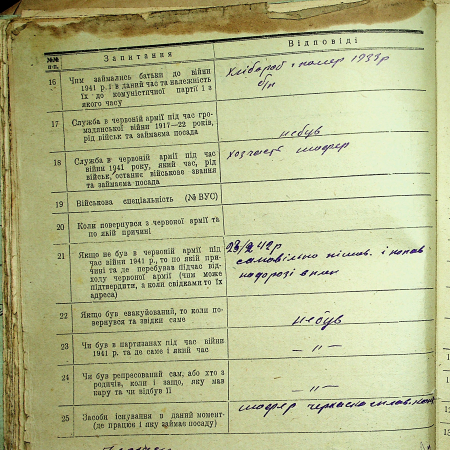 №№ п.п.
Запитання
Відповіді
16 Чим займались батьки до війни
1941 р. і в даний час та належність
їх до комуністичної партії і з
якого часу
Хлібороб і помер 1933 р
б/п
17 Служба в червоній армії під час гро-
мадянської війни 1917—22 років,
рід військ та займаєма посада
небув
18 Служба в червоній армії під час
війни 1941 року, який час, рід
військ, останнє військове звання
та займаєма посада
хозчасть шофер
19 Військова спеціальність (№ ВУС)
20 Коли повернувся з червоної армії та
по якій причині
21 Якщо не був в червоній армії під
час війни 1941 р., то по якій при-
чині та де перебував підчас від-
ходу червоної армії (чим може
підтвердити, а коли свідками то їх
адреса)
42 р
самовільно і попав
на дорозі в плен
22 Якщо був евакуйований, то коли по-
вернувся та звідки саме
небув
23 Чи був в партизанах під час війни
1941 р. та де саме і який час
— „ —
24 Чи був репресований сам, або хто з
родичів, коли і защо, яку мав
кару та чи відбув її
— „ —
25 Засоби існування в даний момент
(де працює і яку займає посаду)
шофер